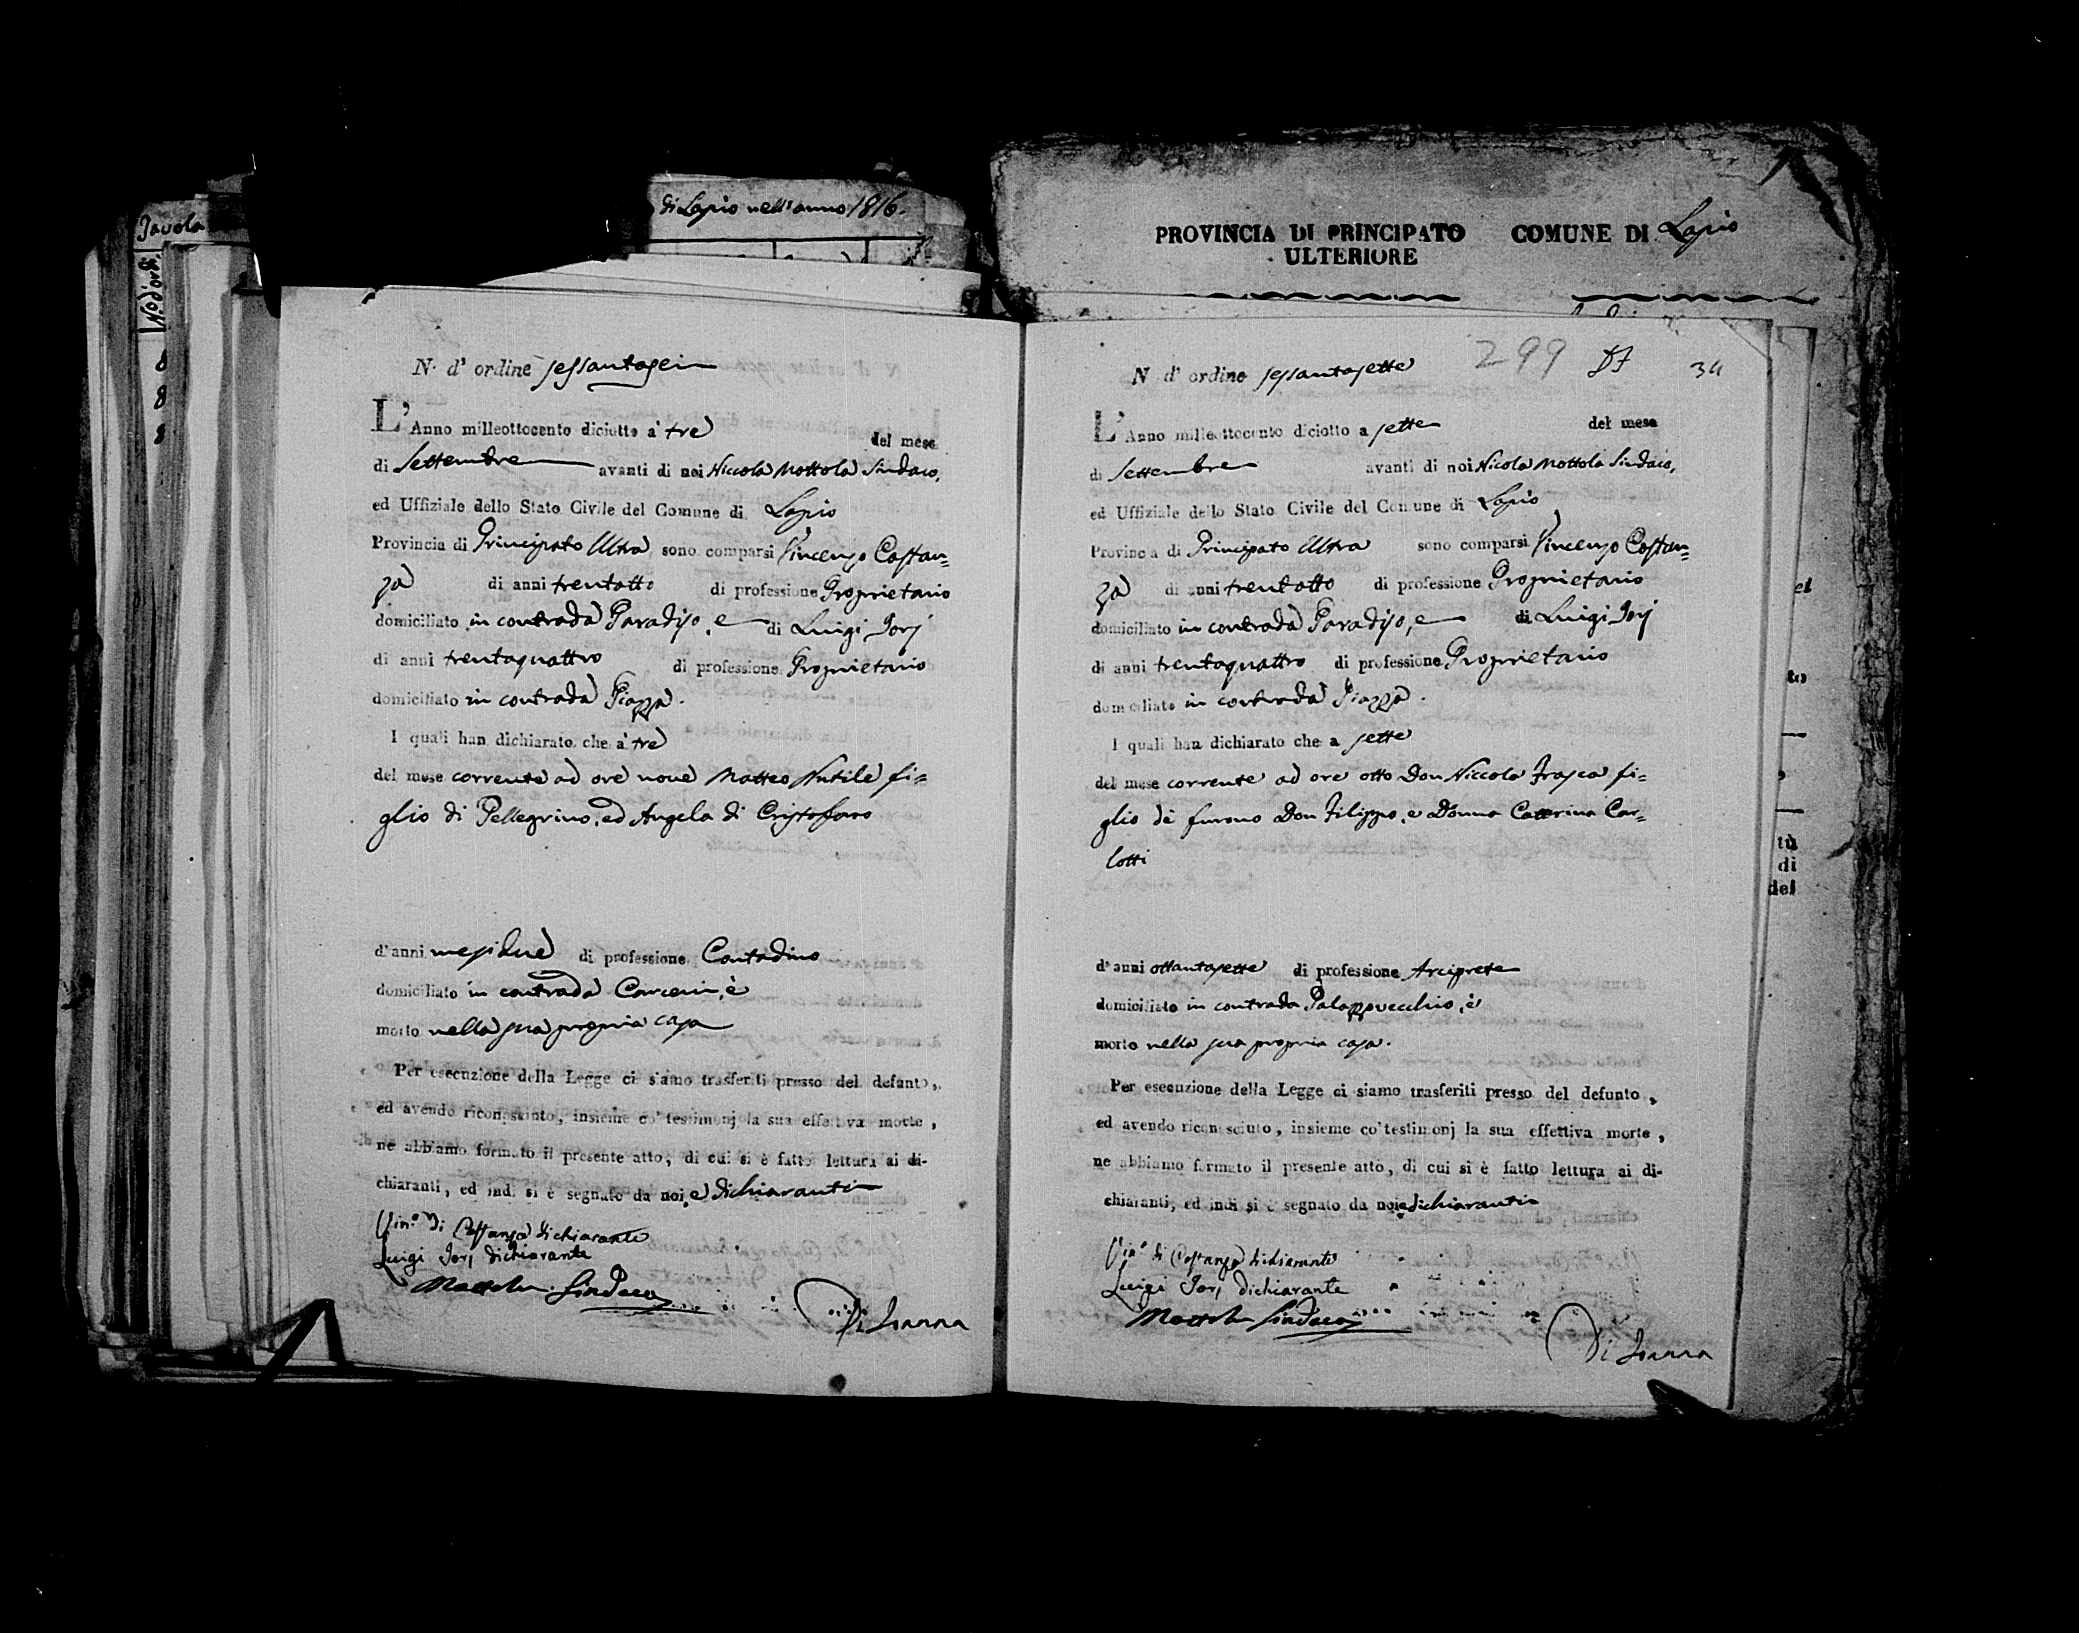 Tavola
di Lapio nell'anno 1816.
No d'ordi.
8
8
8
PROVINCIA DI PRINCIPATO
ULTERIORE
COMUNE DI Lapio
N. d' ordine sessantasei
L'Anno milleottocento diciotto a' tre del mese
di Settembre avanti di noi Niccola Mottola Sindaco,
ed Uffiziale dello Stato Civile del Comune di Lapio
Provincia di Principato Ultra sono comparsi Vincenzo Costan=
za di anni trentotto di professione Proprietario
domiciliato in contrada Paradiso, e di Luigi Jorj
di anni trentaquattro di professione Proprietario
domiciliato in contrada Piazza.
I quali han dichiarato che a' tre
del mese corrente ad ore nove Matteo Nutile fi=
glio di Pellegrino, ed Angela di Cristofaro
d'anni mesi due di professione Contadino
domiciliato in contrada Carceri, è
morto nella sua propria casa
Per esecuzione della Legge ci siamo trasferiti presso del defunto,
ed avendo riconosciuto, insieme co' testimonj la sua effettiva morte,
ne abbiamo formato il presente atto, di cui si è fatto lettura ai di-
chiaranti, ed indi si è segnato da noi, e dichiaranti
Vin.o di Costanza dichiarante
Luigi Jorj dichiarante
Mottola Sindaco
Di Ioanna
299 34
N d' ordine sessantasette
L'Anno milleottocento diciotto a sette del mese
di Settembre avanti di noi Nicola Mottola Sindaco,
ed Uffiziale dello Stato Civile del Comune di Lapio
Provincia di Principato Ultra sono comparsi Vincenzo Costan=
za di anni trentotto di professione Proprietario
domiciliato in contrada Paradiso, e di Luigi Jorj
di anni trentaquattro di professione Proprietario
domiciliato in contrada Piazza.
I quali han dichiarato che a sette
del mese corrente ad ore otto Don Niccola Frasca fi=
glio de' furono Don Filippo, e Donna Catterina Car=
lotti
d'anni ottantasette di professione Arciprete
domiciliato in contrada Palazzovecchio, è
morto nella sua propria casa.
Per esecuzione della Legge ci siamo trasferiti presso del defunto,
ed avendo riconosciuto, insieme co' testimonj la sua effettiva morte,
ne abbiamo formato il presente atto, di cui si è fatto lettura ai di-
chiaranti, ed indi si è segnato da noi e dichiaranti
Vin.o di Costanza dichiarante
Luigi Jorj dichiarante
Mottola Sindaco
Di Ioanna
el
to
tù
di
del